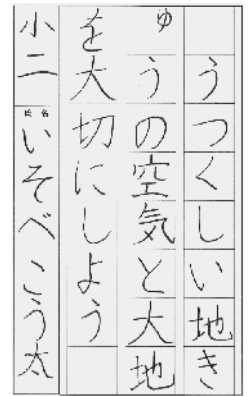 うつくしい地き
ゅうの空気と大地
を大切にしよう
小二
氏名
いそべこう太